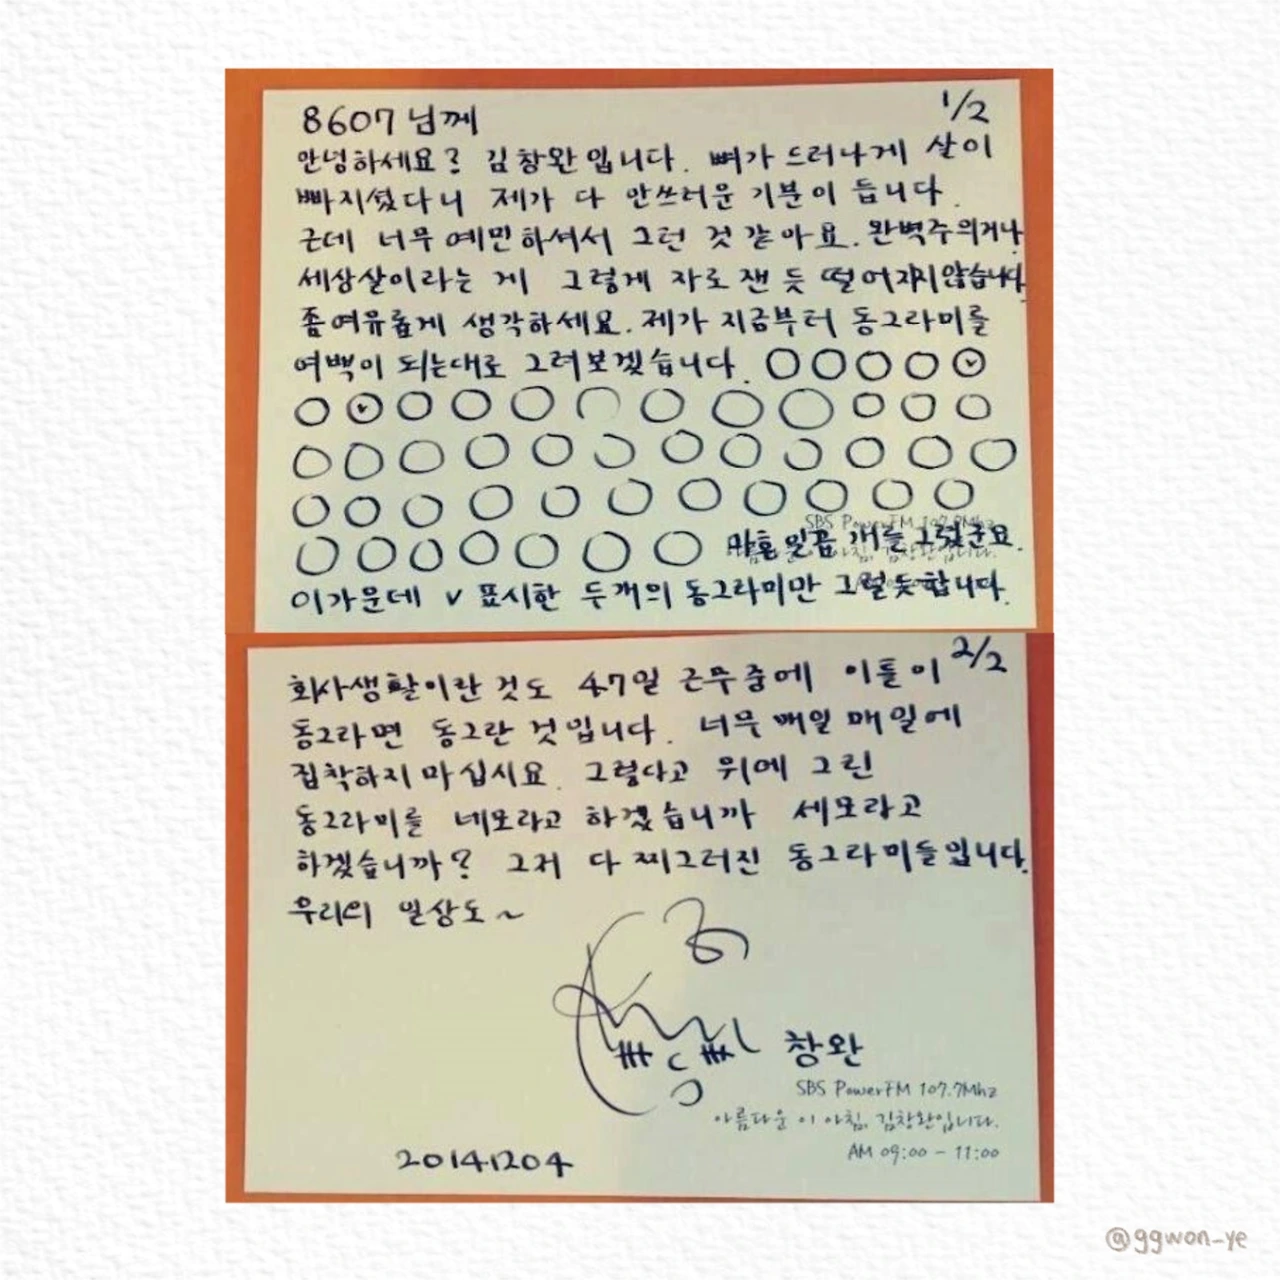 8607님께
1/2
안녕하세요? 김창완입니다. 뼈가 드러나게 살이
빠지셨다니 제가 다 안쓰러운 기분이 듭니다.
근데 너무 예민하셔서 그런 것 같아요. 완벽주의거나
세상살이라는 게 그렇게 자로 잰 듯 떨어지지 않습니다.
좀 여유롭게 생각하세요. 제가 지금부터 동그라미를
여백이 되는대로 그려보겠습니다.
SBS PowerFM 107.7Mhz
마흔 일곱 개를 그렸군요.
이가운데 v 표시한 두개의 동그라미만 그럴듯합니다.
2/2
회사생활이란 것도 47일 근무 중에 이틀이
동그라면 동그란 것입니다. 너무 매일 매일에
집착하지 마십시요. 그렇다고 위에 그린
동그라미를 네모라고 하겠습니까 세모라고
하겠습니까? 그저 다 찌그러진 동그라미들입니다.
우리의 일상도~
창완
SBS PowerFM 107.7Mhz
아름다운 이 아침, 김창완입니다.
AM 09:00 - 11:00
20141204
@ggwon_ye